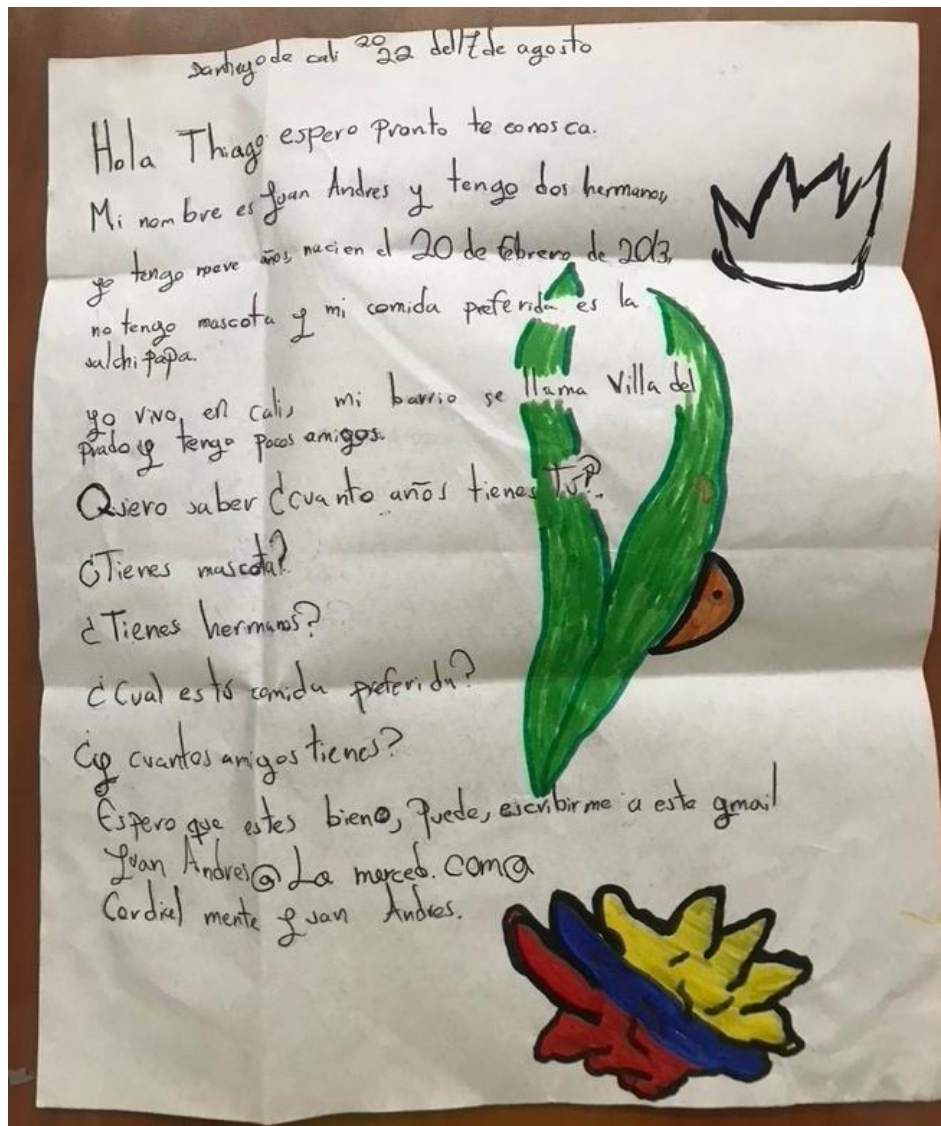 Santiago de cali 2022 del 17 de agosto
Hola Thiago espero Pronto te conosca.
Mi nombre es Juan Andres y tengo dos hermanos,
yo tengo nueve años, naci en el 20 de febrero de 2013,
no tengo mascota y mi comida preferida es la
salchipapa.
yo vivo, en cali, mi barrio se llama Villa del
prado y tengo pocos amigos.
Quiero saber ¿cuanto años tienes Tú?.
¿Tienes mascota?
¿Tienes hermanos?
¿Cual es tú comida preferida?
¿y cuantos amigos tienes?
Espero que estes bien, Puede, escribirme a este gmail
Juan Andres@La merced.com@
Cordial mente Juan Andres.